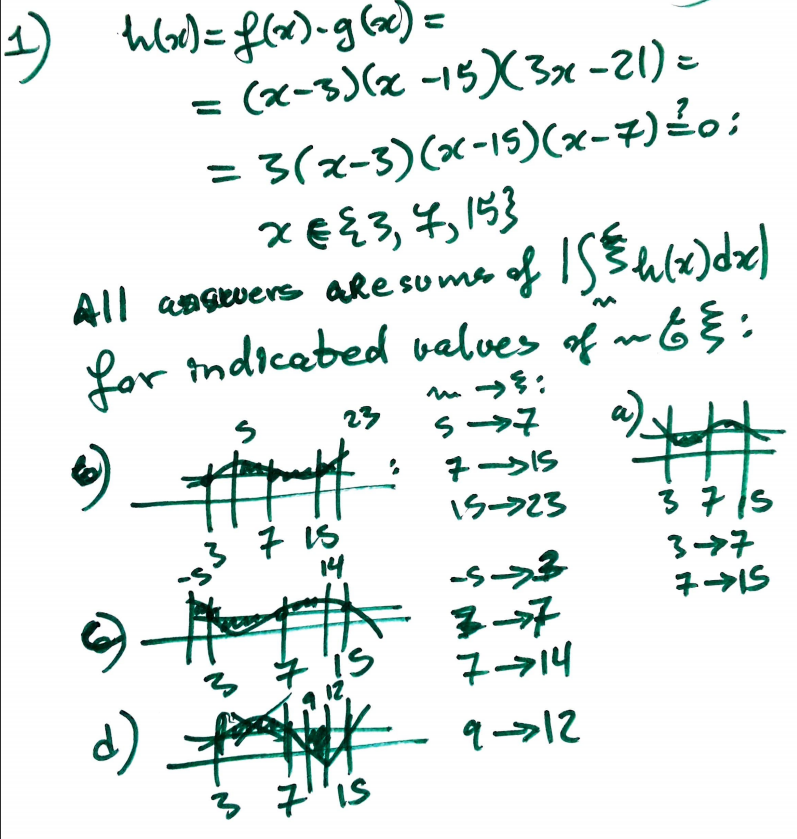 1) h(x) = f(x) - g(x) =
= (x-3)(x-15)(3x-21) =
= 3(x-3)(x-15)(x-7) ?= 0 :
x ∈ {3, 7, 15}
All answers are sums of |∫ₘ^ξ h(x)dx|
for indicated values of m & ξ :
m → ξ :
a)
3 7 15
3→7
7→15
b)
5 23 :
3 7 15
5→7
7→15
15→23
c)
-5 14
3 7 15
-5→3
3→7
7→14
d)
9 12
3 7 15
9→12